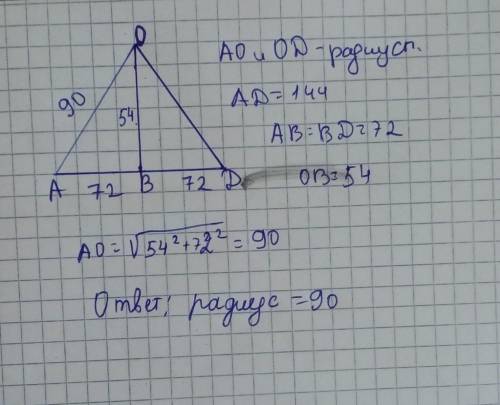 O
90
54
A
72
B
72
D
AO и OD - радиусы.
AD = 144
AB = BD = 72
OB = 54
AO = √54² + 72² = 90
Ответ; радиус = 90